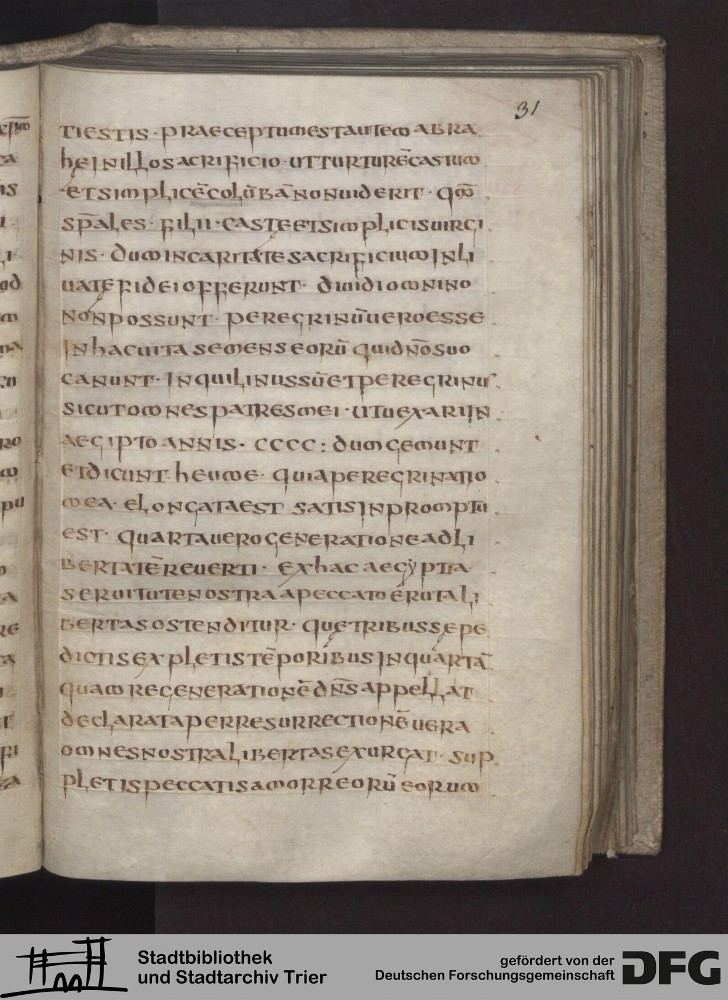 31
TIESTIS · PRAECEPTUMESTAUTEM ABRA
hEINILLOSACRIFICIO · UTTURTURĒCASTUM
ETSIMPLICĒCOLŪBĀNONUIDERIT · QM̄
SPĀLES · FILII · CASTEETSIMPLICISUIRGI
NIS · DUMINCARITATESACRIFICIUMINLI
UATEFIDEIOFFERUNT · DIUIDIOMNINO
NONPOSSUNT · PEREGRINŪUEROESSE
INHACUITASEMENSEORŪ QUIDNŌSUO
CANUNT · INQUILINUSSŪETPEREGRINUS
SICUTOMNESPATRESMEI · UTUEXARIIN
AEGIPTOANNIS · CCCC : DUMGEMUNT
ETDICUNT · hEUME · QUIAPEREGRINATIO
MEA · ELONGATAEST SATISINPROMPTU
EST · QUARTAUEROGENERATIONEADLI
BERTATĒREUERTI · EXHACAEGYPTIA
SERUITUTENOSTRAAPECCATOERUTALI
BERTASOSTENDITUR · QUETRIBUSSEPE
DICTISEXPLETISTĒPORIBUSINQUARTĀ
QUAMREGENERATIONĒDN̄SAPPELLAT
DECLARATAPERRESURRECTIONĒUERA
OMNESNOSTRALIBERTASEXURGAT · SUP
PLETISPECCATISAMORREORŪ EORUM
Stadtbibliothek
und Stadtarchiv Trier
gefördert von der
Deutschen Forschungsgemeinschaft
DFG